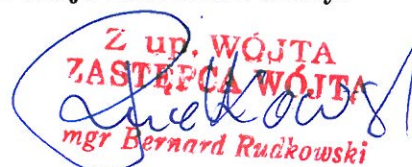 Z up. WÓJTA
ZASTĘPCA WÓJTA
Rudkowski
mgr Bernard Rudkowski